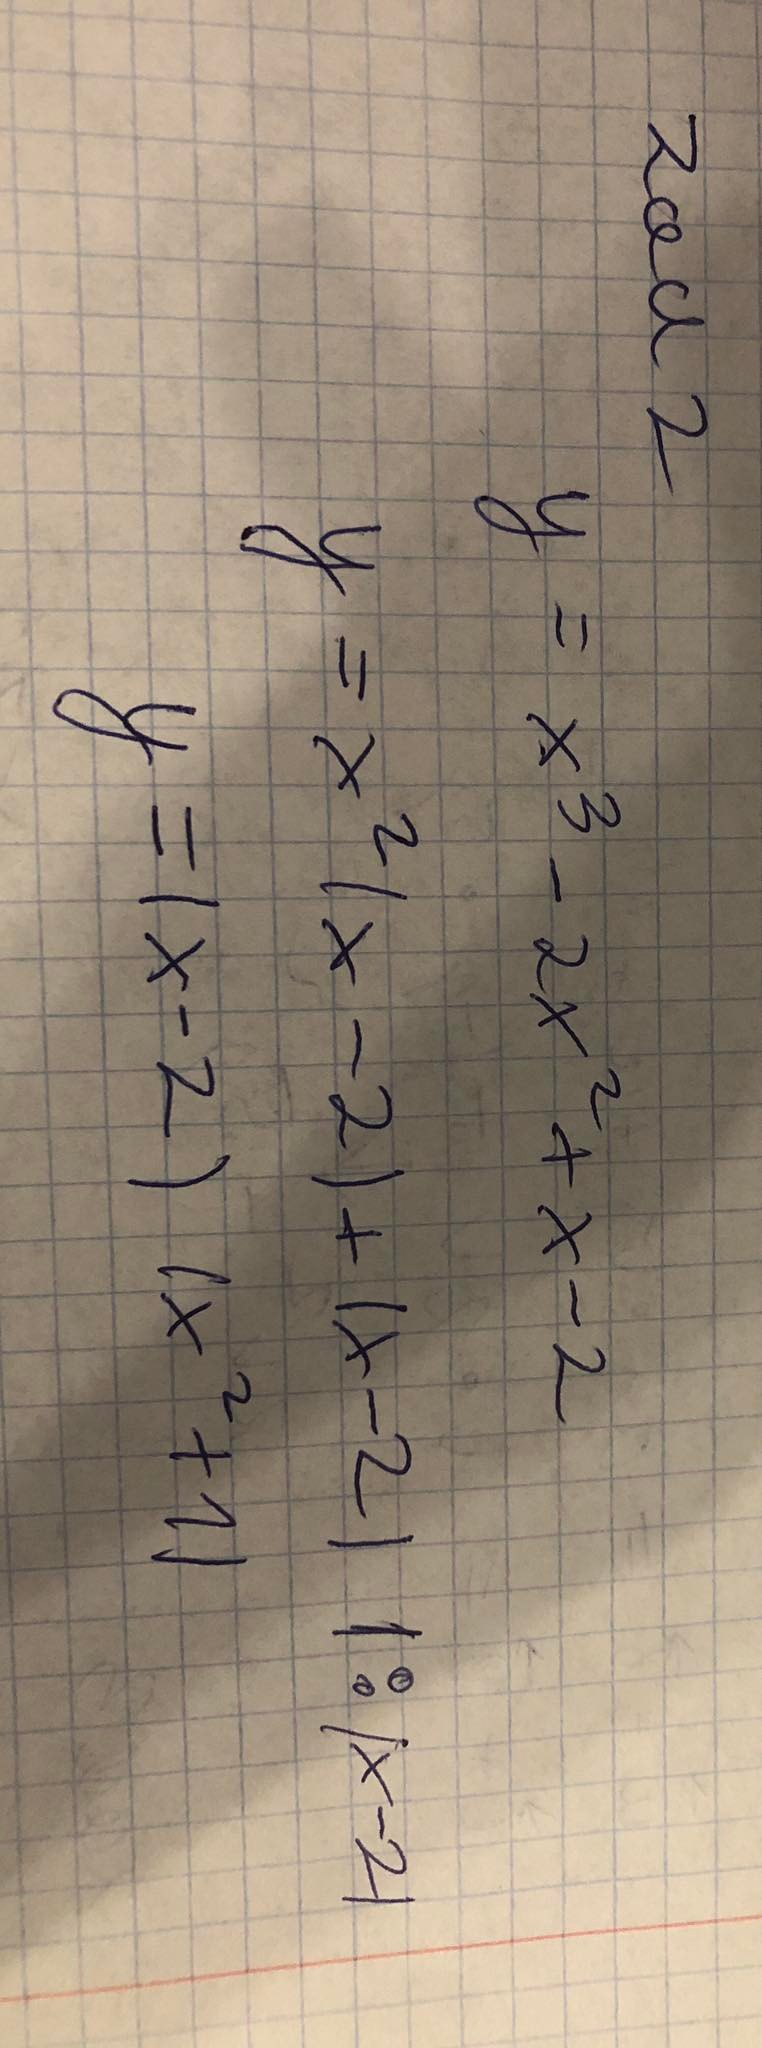 Zad 2
y = x³ - 2x² + x - 2
y = x²(x - 2) + (x - 2) | : (x - 2)
y = (x - 2) (x² + 1)